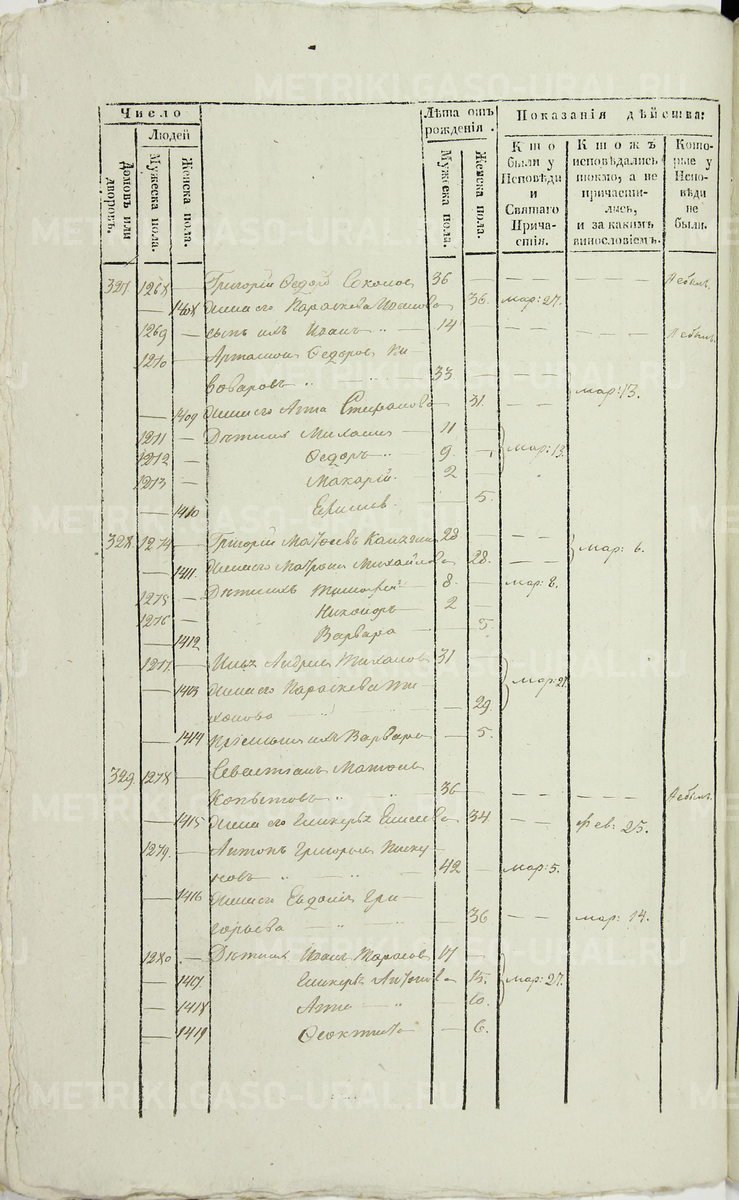 METRIKI.GASO-URAL.RU
Число
Людей
Домовъ или дворовъ.
Мужеска пола.
Женска пола.
Лѣта отъ рожденія.
Мужеска пола.
Женска пола.
Показанія дѣйства:
Кто были у Исповѣди и Святаго Причастія.
Ктожъ исповѣдались токмо, а не причастились, и за какимъ винословіемъ.
Которые у Исповѣди не были.
327 1268 — Григорій Ѳедоровъ 36 — — — — — Небылъ.
— 1408 Жена его Параскева — 36. мар: 27.
1269 — сынъ ихъ Иванъ 14 — — — — — Небылъ.
1270 — Артамонъ Ѳедоровъ
33 — — — мар: 13.
— 1409 Жена его Анна Стефанова — 31. — —
1271 — Дѣти ихъ Михаилъ 11 —
1272 — Ѳедоръ 9 — мар: 13.
1273 — Макарій 2 —
— 1410 — 5.
328 1274 — Григорій Матѳеевъ 28 — — — мар: 6.
— 1411. Жена его Матрона Михайлова — 28. — —
1275 — Дѣти ихъ Тимофей 8 — мар: 8.
1276 — Никаноръ 2 —
— 1412 Варвара — 5.
1277 — Андрей Тихановъ 31 — мар: 27.
— 1413 Жена его Параскева
— 29
— 1414 ихъ Варвара — 5.
329 1278 — Севастіанъ
Копытовъ 36 — — — — — Небылъ.
— 1415 Жена его Гликерія Елисеева — 34. — — Фев: 25.
1279. — Антонъ Григорьевъ
42 — мар: 5.
— 1416 Жена его Евдокія Гри-
горьева — 36 — — мар: 14.
1280 — Дѣти ихъ Иванъ Тарасовъ 17 —
— 1417 Гликерія Антонова — 15. мар: 27.
— 1418 Анна — 10.
— 1419 Ѳеоктиста — 6.